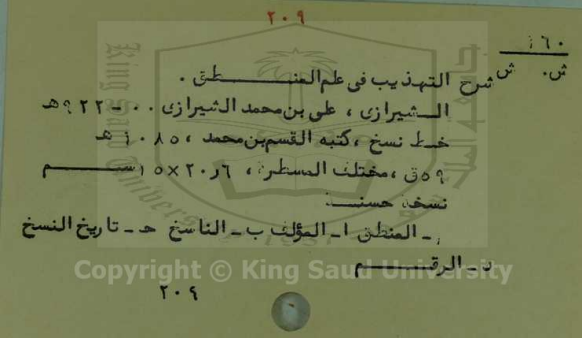 ٢٠٩
١٦٠
ش. ش
شرح التهذيب في علم المنطق .
الشيرازى ، على بن محمد الشيرازى ٠٠ - ٩٢٢ هـ
خط نسخ ، كتبه القسم بن محمد ، ١٠٨٥ هـ
٥٩ ق ، مختلف المسطرة ، ٢٠٫٦ × ١٥ سم
نسخة حسنة
١ - المنطق ا - المؤلف ب - الناسخ ح - تاريخ النسخ
د - الرقم
Copyright © King Saud University
٢٠٩